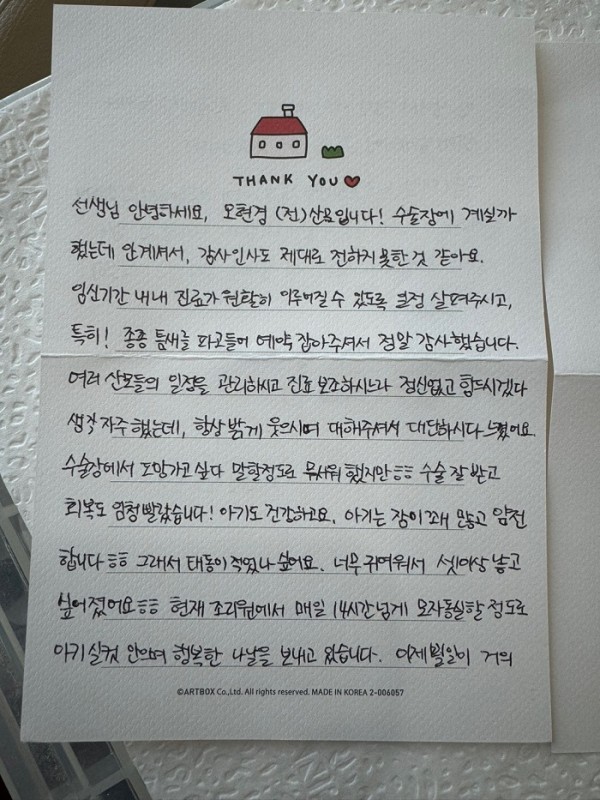 THANK YOU
선생님 안녕하세요, 오현경 (전)산모입니다! 수술장에 계실까
했는데 안계셔서, 감사인사도 제대로 전하지 못한 것 같아요.
임신기간 내내 진료가 원활히 이루어질 수 있도록 일정 살펴주시고,
특히! 종종 틈새를 파고들어 예약 잡아주셔서 정말 감사했습니다.
여러 산모들의 일정을 관리하시고 진료 보조하시느라 정신없고 힘드시겠다
생각 자주 했는데, 항상 밝게 웃으시며 대해주셔서 대단하시다 느꼈어요.
수술장에서 도망가고 싶다 말할정도로 무서워 했지만ㅎㅎ 수술 잘 받고
회복도 엄청 빨랐습니다! 아기도 건강하고요, 아기는 잠이 꽤 많고 얌전
합니다ㅎㅎ 그래서 태동이 적었나 싶어요. 너무 귀여워서 셋이상 낳고
싶어졌어요ㅎㅎ 현재 조리원에서 매일 14시간 넘게 모자동실할 정도로
아기 실컷 안으며 행복한 나날을 보내고 있습니다. 이제 붓기이 거의
©ARTBOX Co.,Ltd. All rights reserved. MADE IN KOREA 2-006057